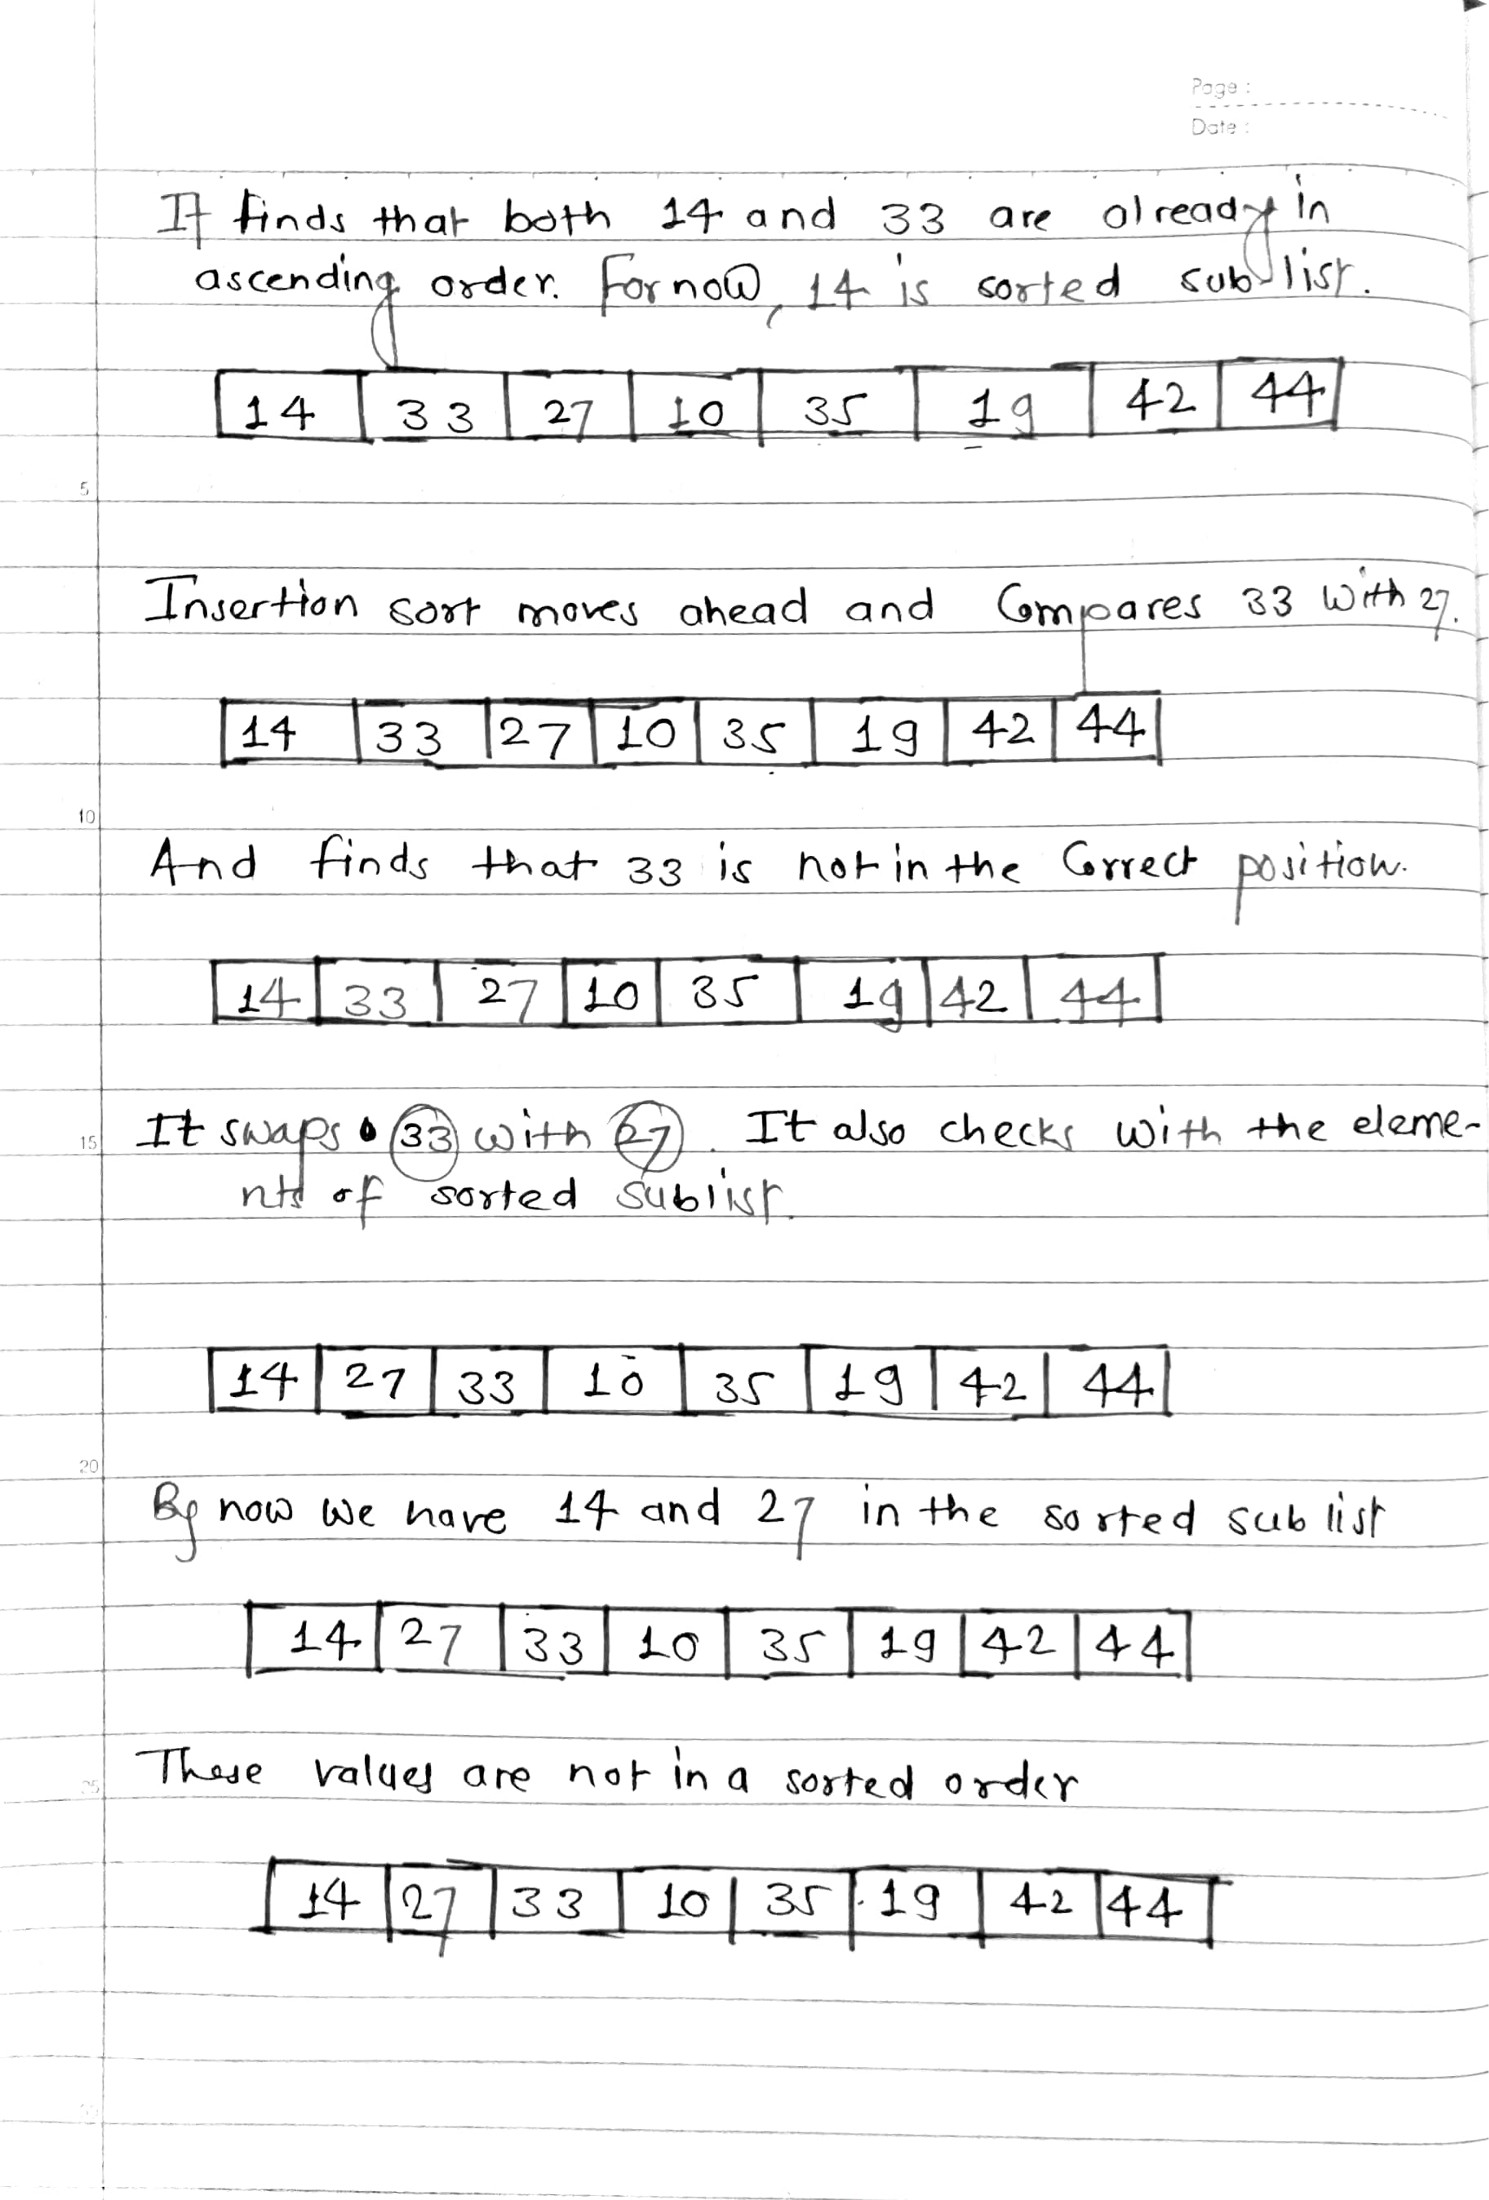 Page :
Date :
It finds that both 14 and 33 are already in
ascending order. For now, 14 is sorted sub-list.
14 33 27 10 35 19 42 44
5
Insertion sort moves ahead and Compares 33 with 27.
14 33 27 10 35 19 42 44
10
And finds that 33 is not in the Correct position.
14 33 27 10 35 19 42 44
15
It swaps 33 with 27. It also checks with the eleme-
nts of sorted sublist.
14 27 33 10 35 19 42 44
20
By now we have 14 and 27 in the sorted sub list
14 27 33 10 35 19 42 44
These values are not in a sorted order
25
14 27 33 10 35 19 42 44